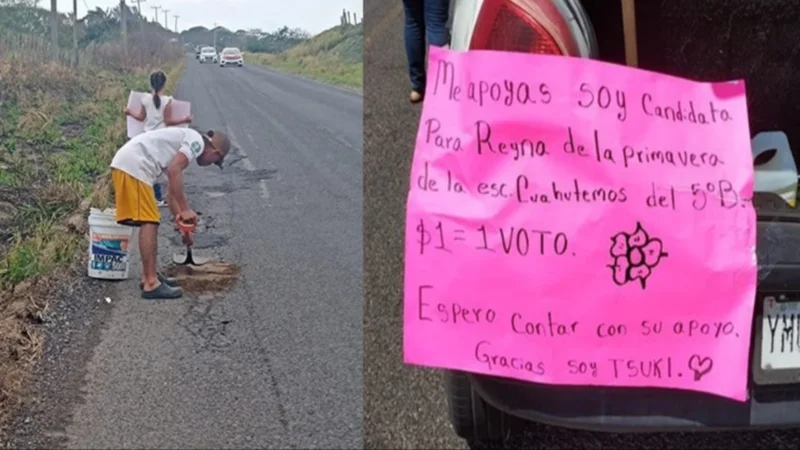 IMPAC
Me apoyas soy candidata
Para Reyna de la primavera
de la esc. Cuahutemos del 5ºB.
$1 = 1 VOTO.
Espero contar con su apoyo.
Gracias soy TSUKI.